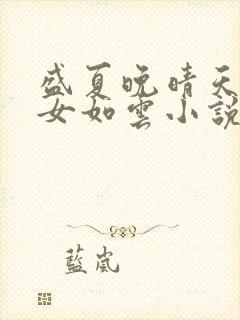 盛夏晚晴天
女如雲小說
藍嵐